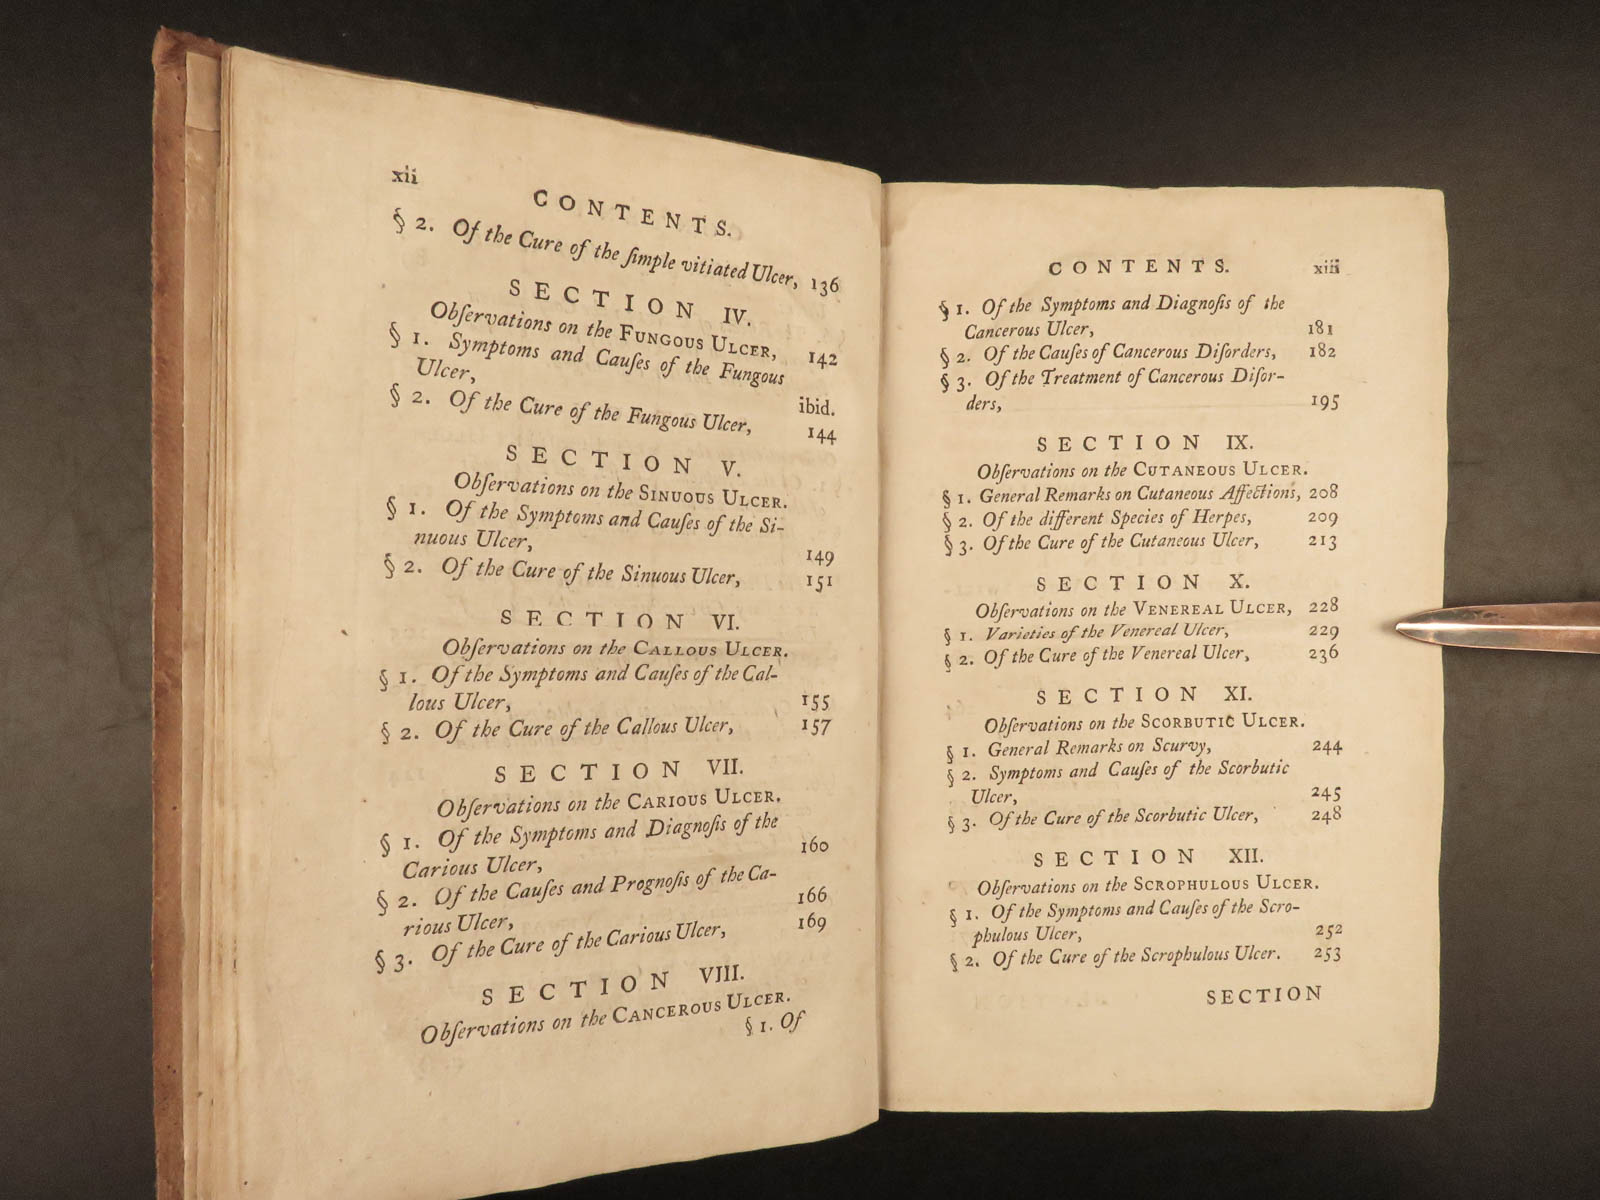 xii
CONTENTS.
§ 2. Of the Cure of the ſimple vitiated Ulcer, 136
SECTION IV.
Obſervations on the FUNGOUS ULCER, 142
§ 1. Symptoms and Cauſes of the Fungous
Ulcer, ibid.
§ 2. Of the Cure of the Fungous Ulcer, 144
SECTION V.
Obſervations on the SINUOUS ULCER.
§ 1. Of the Symptoms and Cauſes of the Si-
nuous Ulcer, 149
§ 2. Of the Cure of the Sinuous Ulcer, 151
SECTION VI.
Obſervations on the CALLOUS ULCER.
§ 1. Of the Symptoms and Cauſes of the Cal-
lous Ulcer, 155
§ 2. Of the Cure of the Callous Ulcer, 157
SECTION VII.
Obſervations on the CARIOUS ULCER.
§ 1. Of the Symptoms and Diagnoſis of the
Carious Ulcer, 160
§ 2. Of the Cauſes and Prognoſis of the Ca-
rious Ulcer, 166
§ 3. Of the Cure of the Carious Ulcer, 169
SECTION VIII.
Obſervations on the CANCEROUS ULCER.
§ 1. Of
CONTENTS. xiii
§ 1. Of the Symptoms and Diagnoſis of the
Cancerous Ulcer, 181
§ 2. Of the Cauſes of Cancerous Diſorders, 182
§ 3. Of the Treatment of Cancerous Diſor-
ders, 195
SECTION IX.
Obſervations on the CUTANEOUS ULCER.
§ 1. General Remarks on Cutaneous Affections, 208
§ 2. Of the different Species of Herpes, 209
§ 3. Of the Cure of the Cutaneous Ulcer, 213
SECTION X.
Obſervations on the VENEREAL ULCER, 228
§ 1. Varieties of the Venereal Ulcer, 229
§ 2. Of the Cure of the Venereal Ulcer, 236
SECTION XI.
Obſervations on the SCORBUTIC ULCER.
§ 1. General Remarks on Scurvy, 244
§ 2. Symptoms and Cauſes of the Scorbutic
Ulcer, 245
§ 3. Of the Cure of the Scorbutic Ulcer, 248
SECTION XII.
Obſervations on the SCROPHULOUS ULCER.
§ 1. Of the Symptoms and Cauſes of the Scro-
phulous Ulcer, 252
§ 2. Of the Cure of the Scrophulous Ulcer. 253
SECTION